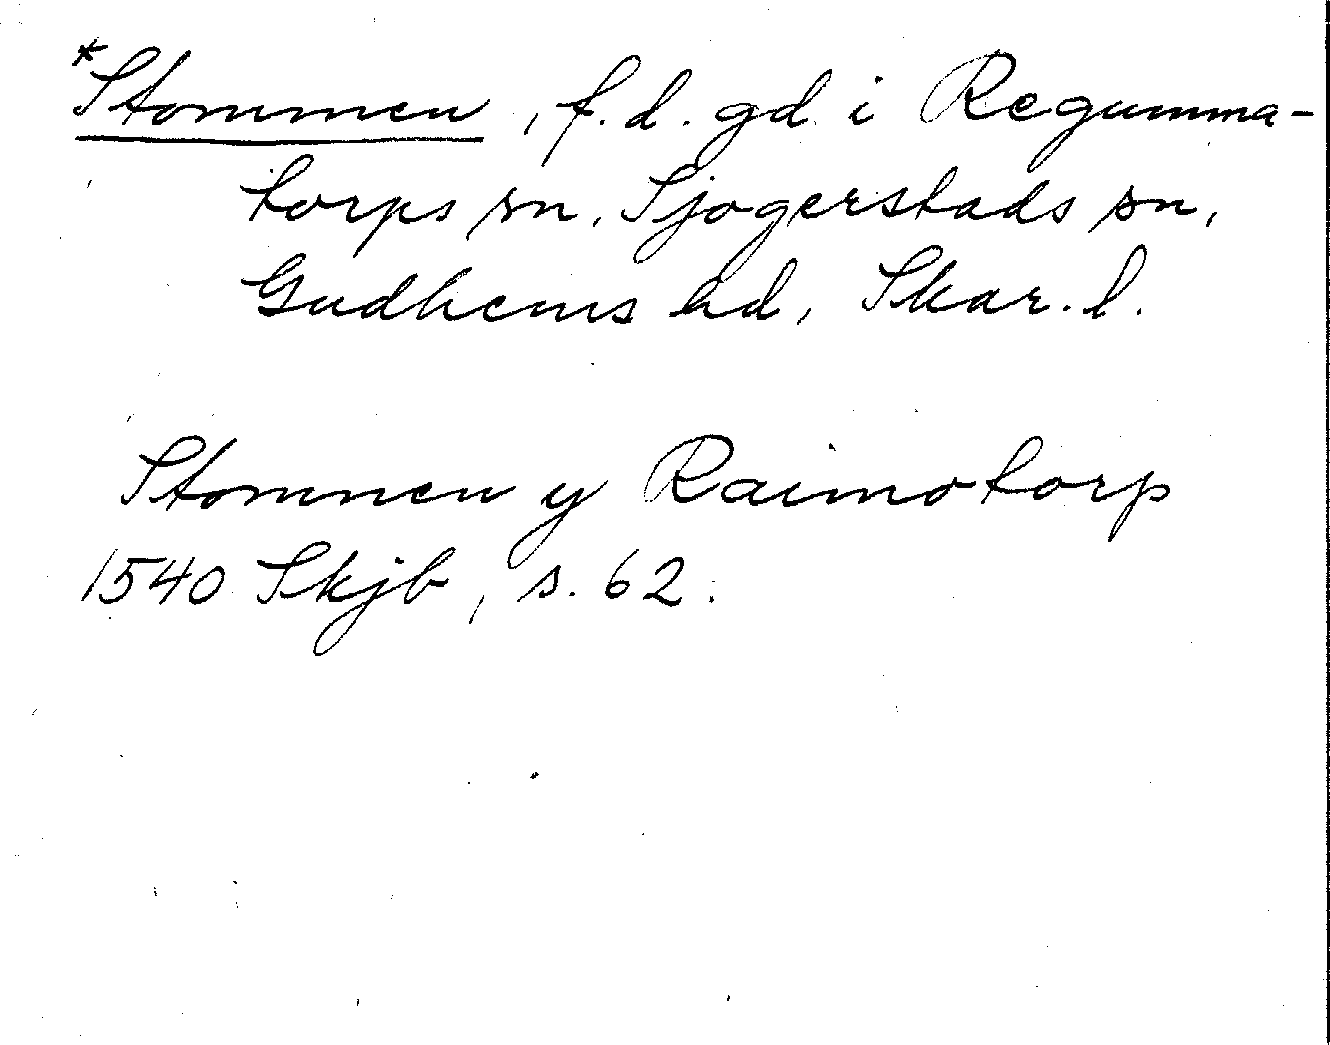 *Stommen, f.d. gd i Regumma-
torps sn, Sjogerstads sn,
Gudhems hd, Skar. l.
Stommen y Raimotorp
1540 Skjb, s. 62.